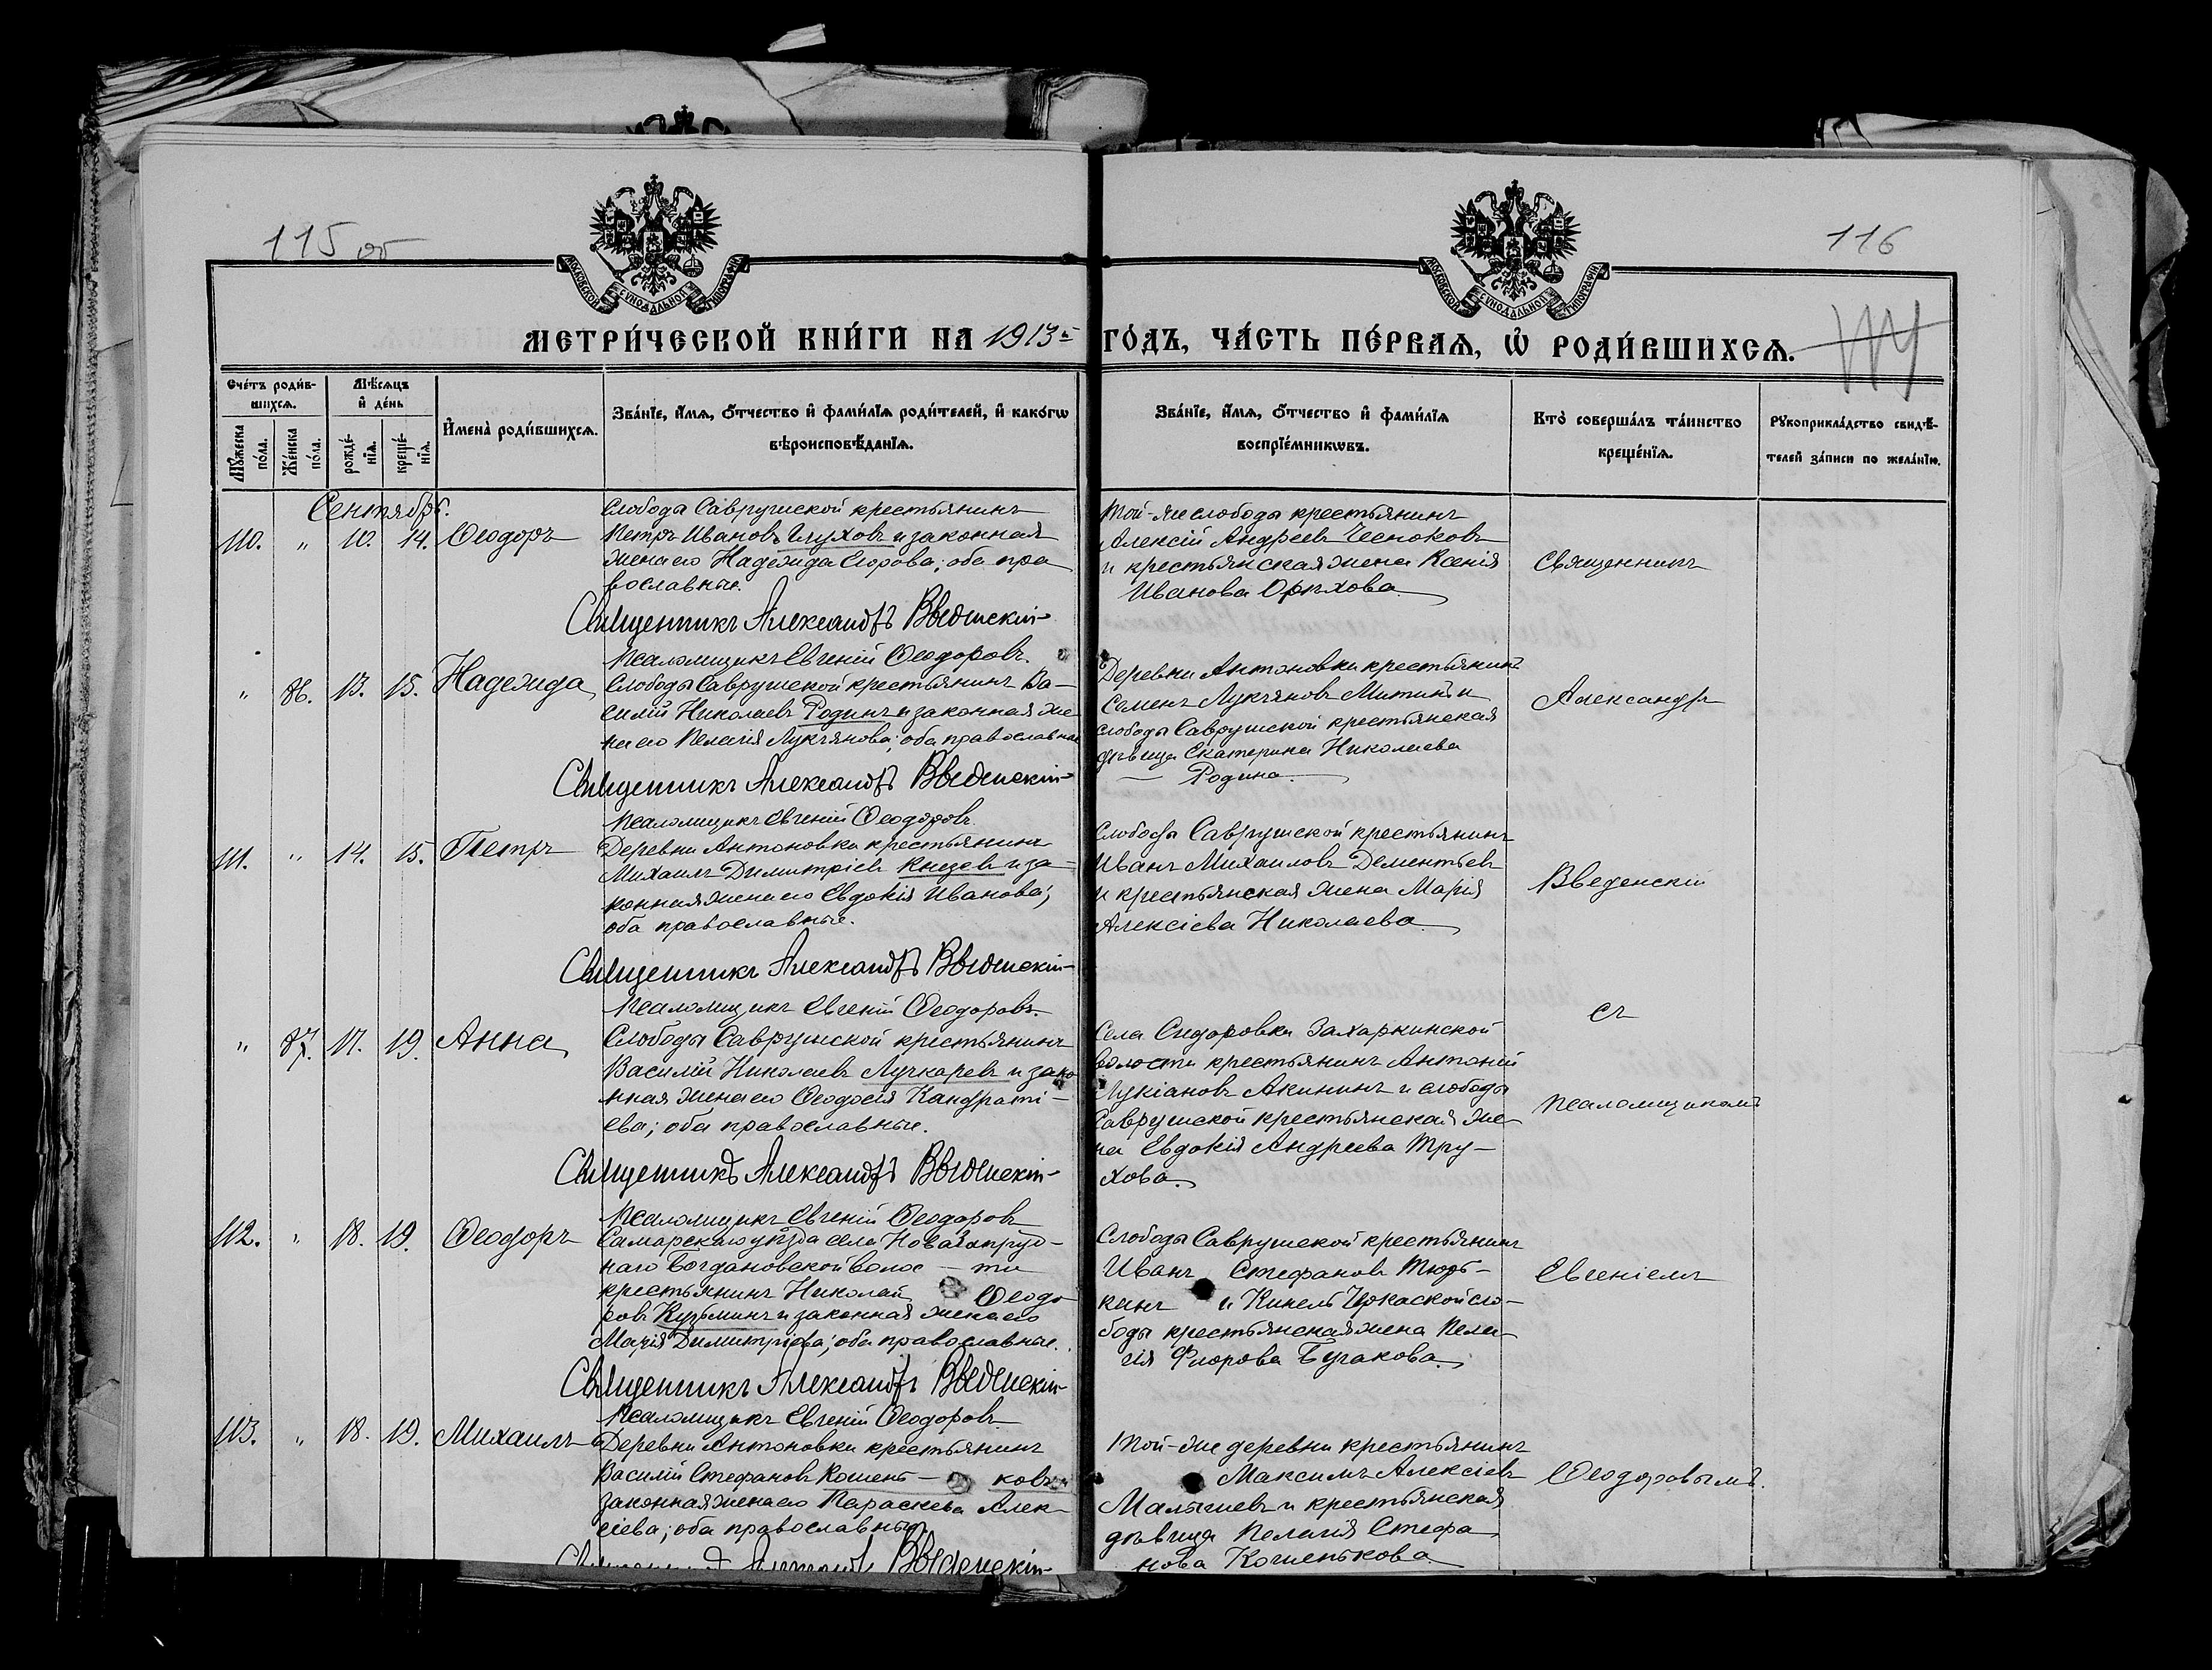 115 об
116
МОСКОВСКОЙ СѴНОДАЛЬНОЙ ТИПОГРАФІИ
МОСКОВСКОЙ СѴНОДАЛЬНОЙ ТИПОГРАФІИ
МЕТРИ́ЧЕСКОЙ КНИ́ГИ НА 1913й ГО́ДЪ, ЧА́СТЬ ПЕ́РВАѦ, Ѡ҆ РОДИ́ВШИХСѦ.
Сче́тъ роди́в-
шихсѧ.
Мѣ́сѧцъ
и҆ де́нь
Му́жеска по́ла.
Же́нска по́ла.
рожде́-
нїѧ.
креще́-
нїѧ.
И҆мена̀ роди́вшихсѧ.
Зва́нїе, и҆́мѧ, ѻ҆́тчество и҆ фами́лїѧ роди́телей, и҆ како́гѡ
вѣроисповѣ́данїѧ.
Зва́нїе, и҆́мѧ, ѻ҆́тчество и҆ фами́лїѧ
воспрїе́мникѡвъ.
Кто̀ соверша́лъ та́инство
креще́нїѧ.
Рꙋкоприкла́дство свидѣ́-
телей за́писи по жела́нїю.
Сентябрь.
110. " 10. 14. Ѳеодоръ
Слободы Саврушской крестьянинъ
Петръ Ивановъ Глуховъ и законная
жена его Надежда Егорова; оба пра
вославные.
Священникъ Александръ Введенскій
Псаломщикъ Евгеній Ѳеодоровъ.
Той-же слободы крестьянинъ
Алексій Андреевъ Чесноковъ
и крестьянская жена Ксенія
Иванова Орѣхова
Священникъ
" 86. 13. 15. Надежда
Слободы Саврушской крестьянинъ Ва-
силій Николаевъ Родинъ и законная же
на его Пелагія Лукьянова; оба православные
Священникъ Александръ Введенскій
Псаломщикъ Евгеній Ѳеодоровъ
Деревни Антоновки крестьянинъ
Семенъ Лукьяновъ Митинъ и
слободы Саврушской крестьянская
дѣвица Екатерина Николаева
Родина
Александръ
111. " 14. 15. Петръ
Деревни Антоновки крестьянинъ
Михаилъ Димитріевъ Князевъ и за-
конная жена его Евдокія Иванова;
оба православные.
Священникъ Александръ Введенскій
Псаломщикъ Евгеній Ѳеодоровъ.
Слободы Саврушской крестьянинъ
Иванъ Михаиловъ Дементьевъ
и крестьянская жена Марія
Алексіева Николаева
Введенскій
съ
" 87. 17. 19. Анна
Слободы Саврушской крестьянинъ
Василій Николаевъ Лучкаревъ и зако
нная жена его Ѳеодосія Кандрати-
ева; оба православные.
Священникъ Александръ Введенскій
Псаломщикъ Евгеній Ѳеодоровъ
Села Сидоровки Захаркинской
волости крестьянинъ Антоній
Лукіановъ Акининъ и слободы
Саврушской крестьянская же-
на Евдокія Андреева Тру-
хова.
Псаломщикомъ
112. " 18. 19. Ѳеодоръ
Самарскаго уѣзда села
наго Богдановской волос - ти
крестьянинъ Николай Ѳеодо
ровъ Кузьминъ и законная жена его
Марія Димитріева; оба православные.
Священникъ Александръ Введенскій
Псаломщикъ Евгеній Ѳеодоровъ
Слободы Саврушской крестьянинъ
Иванъ Стефановъ Тюрь-
кинъ и Кинель Черкаской сло-
боды крестьянская жена Пела-
гія Флорова Бугакова
Евгеніемъ
113. " 18. 19. Михаилъ
Деревни Антоновки крестьянинъ
Василій Стефановъ Кошень - ковъ и
законная жена его Параскева Алек-
сіева; оба православные
Священникъ Александръ Введенскій
Той-же деревни крестьянинъ
Максимъ Алексіевъ
Малышевъ и крестьянская
дѣвица Пелагія Стефа
нова Кошенькова
Ѳеодоровымъ.